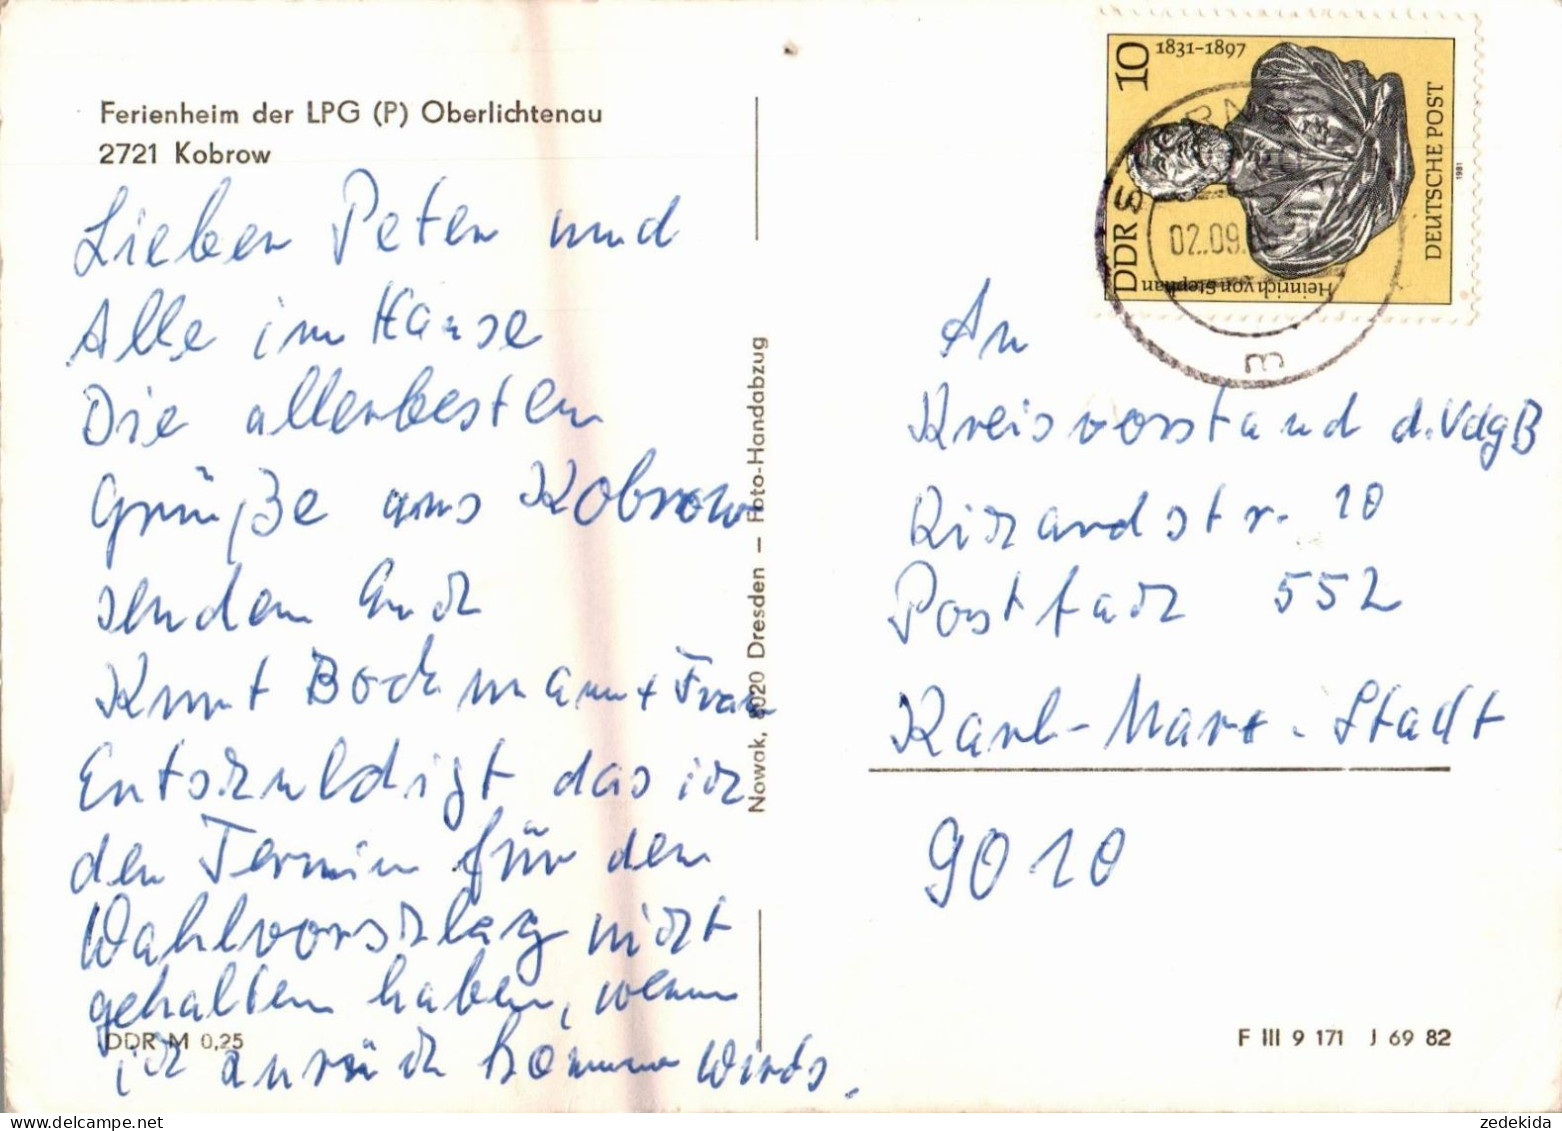 Ferienheim der LPG (P) Oberlichtenau
2721 Kobrow
Lieber Peter und
Alle im Hause
Die allerbesten
Grüße aus Kobrow
senden Euch
Kurt Bochmann + Frau
Entschuldigt das ich
den Termin für den
Wahlvorschlag nicht
gehalten haben, wenn
ich zurück komme wirds.
DDR M 0,25
Nowak, 8020 Dresden — Foto-Handabzug
10
1831-1897
DDR
Heinrich von Stephan
DEUTSCHE POST
1981
02.09.
m
An
Kreisvorstand d. VdgB
Postfach 552
Karl-Marx-Stadt
9010
F III 9 171 J 69 82
zedekida